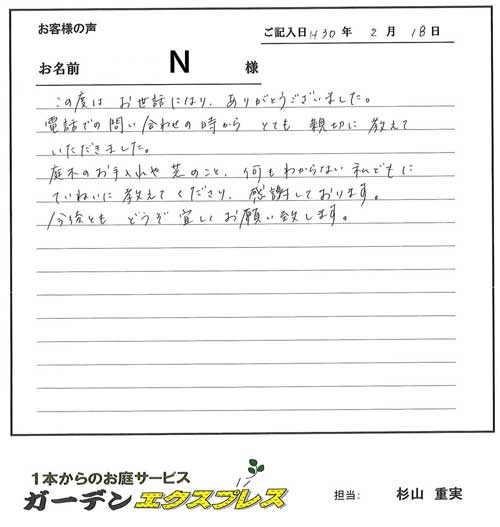 お客様の声
ご記入日 H30 年 2 月 18 日
お名前 N 様
この度は お世話になり、ありがとうございました。
電話での問い合わせの時から とても 親切に 教えて
いただきました。
庭木のお手入れや 芝のこと、何もわからない 私どもに
ていねいに 教えてくださり、感謝しております。
今後とも どうぞ 宜しく お願い致します。
1本からのお庭サービス
ガーデンエクスプレス
担当: 杉山 重実